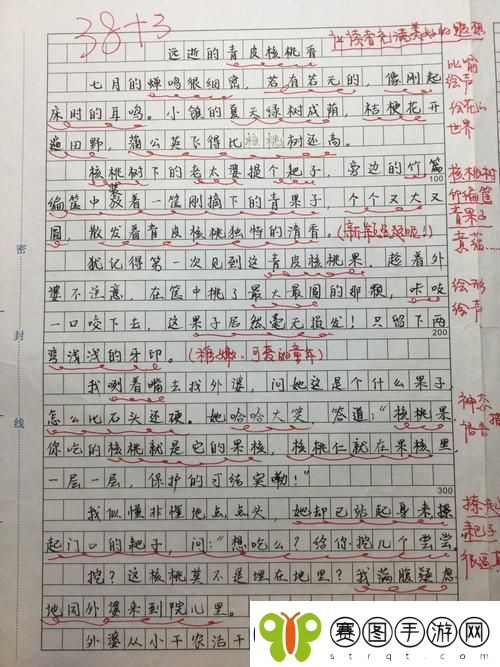 38+3
让读者充满美好的遐想
远逝的青皮核桃香
七月的蝉鸣很细密，若有若无的，像刚起
比喻
床时的耳鸣。小镇的夏天绿树成荫，桔梗花开
绘声
绘色
遍田野，蒲公英飞得比核桃树还高。
世界
核桃树下的老太婆摸个耙子，旁边的竹篇
核桃树
100
编筐中装着一筐刚摘下的青果子，个个又大又
竹编筐
圆，散发着青皮核桃独特的清香。
青果子
密
犹记得第一次见到这青皮核桃果，趁着外
婆不注意，在筐中挑了最大最圆的那颗，咔吱
绘形
一口咬下去，这果子居然毫无损发！只留下两
绘声
200
封
弯浅浅的牙印。（稚嫩、可爱的童年）
我咧着嘴去找外婆，问她这是个什么果子，
神态
线
怎么比石头还硬。她哈哈大笑，答道：“核桃果，
语言
你吃的核桃就是它的果核，核桃仁就在果核里，
一层一层，保护的可结实嘞！”
300
我似懂非懂地点点头，她却已站起身来操
起门口的耙子，问：“想吃么？给你挖几个尝尝。
耙子
挖？这核桃莫不是埋在地里？我满腹疑惑
地同外婆来到院儿里。
外婆从小干农活干
赛图手游网
strqt.com